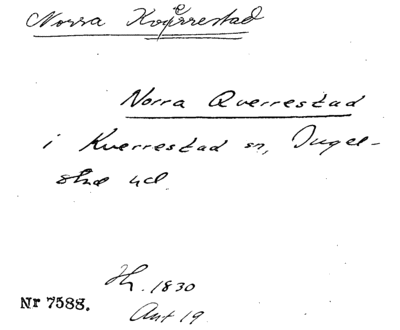 Norra Kverrestad
Norra Qverrestad
i Kverrestad sn, Ingel-
stad hd.
Hh. 1830
Nr 7588.
Ant 19